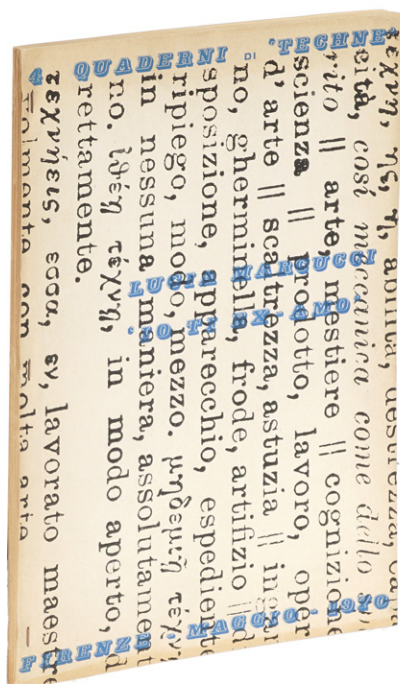 4 QUADERNI DI "TECHNE"
LUCIA MARCUCCI
"IO TI EX-AMO"
FIRENZE - MAGGIO - 1970
τέχνη, ης, ἡ, abilità, destrezza,
cità, così meccanica come dello
rito || arte, mestiere || cognizione
scienza || prodotto, lavoro, oper
d' arte || scaltrezza, astuzia ||
no, gherminella, frode, artifizio || d
sposizione, apparecchio, espediente
ripiego, modo, mezzo. μηδεμιῇ τέχνῃ
in nessuna maniera, assolutament
no. ἰθέῃ τέχνῃ, in modo aperto, d
rettamente.
τεχνήεις, εσσα, εν, lavorato maestre
con molta arte